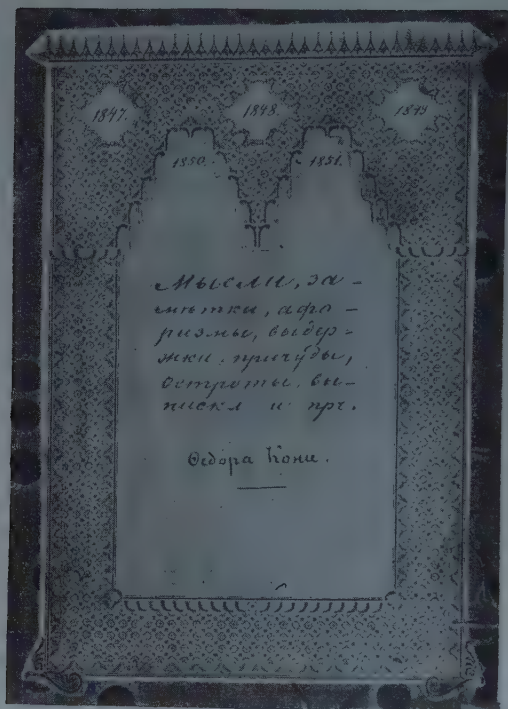 1847. 1848. 1849
1850. 1851.
Мысли, за-
мѣтки, афо-
ризмы, выдер-
жки, причуды,
остроты, вы-
писки и пр.
Ѳедора Кони.